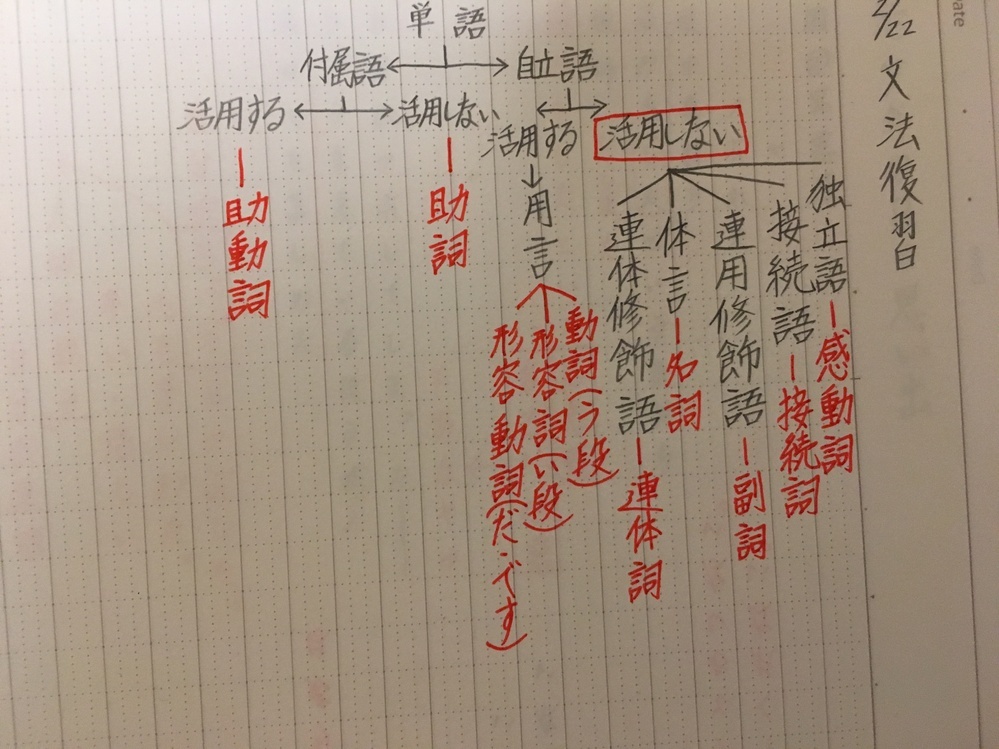 ate
2/22 文法復習
単語
付属語 自立語
活用する 活用しない 活用する 活用しない
助動詞
助詞
用言
動詞(う段)
形容詞(い段)
形容動詞(だ・です)
独立語ー感動詞
接続語ー接続詞
連用修飾語ー副詞
体言ー名詞
連体修飾語ー連体詞